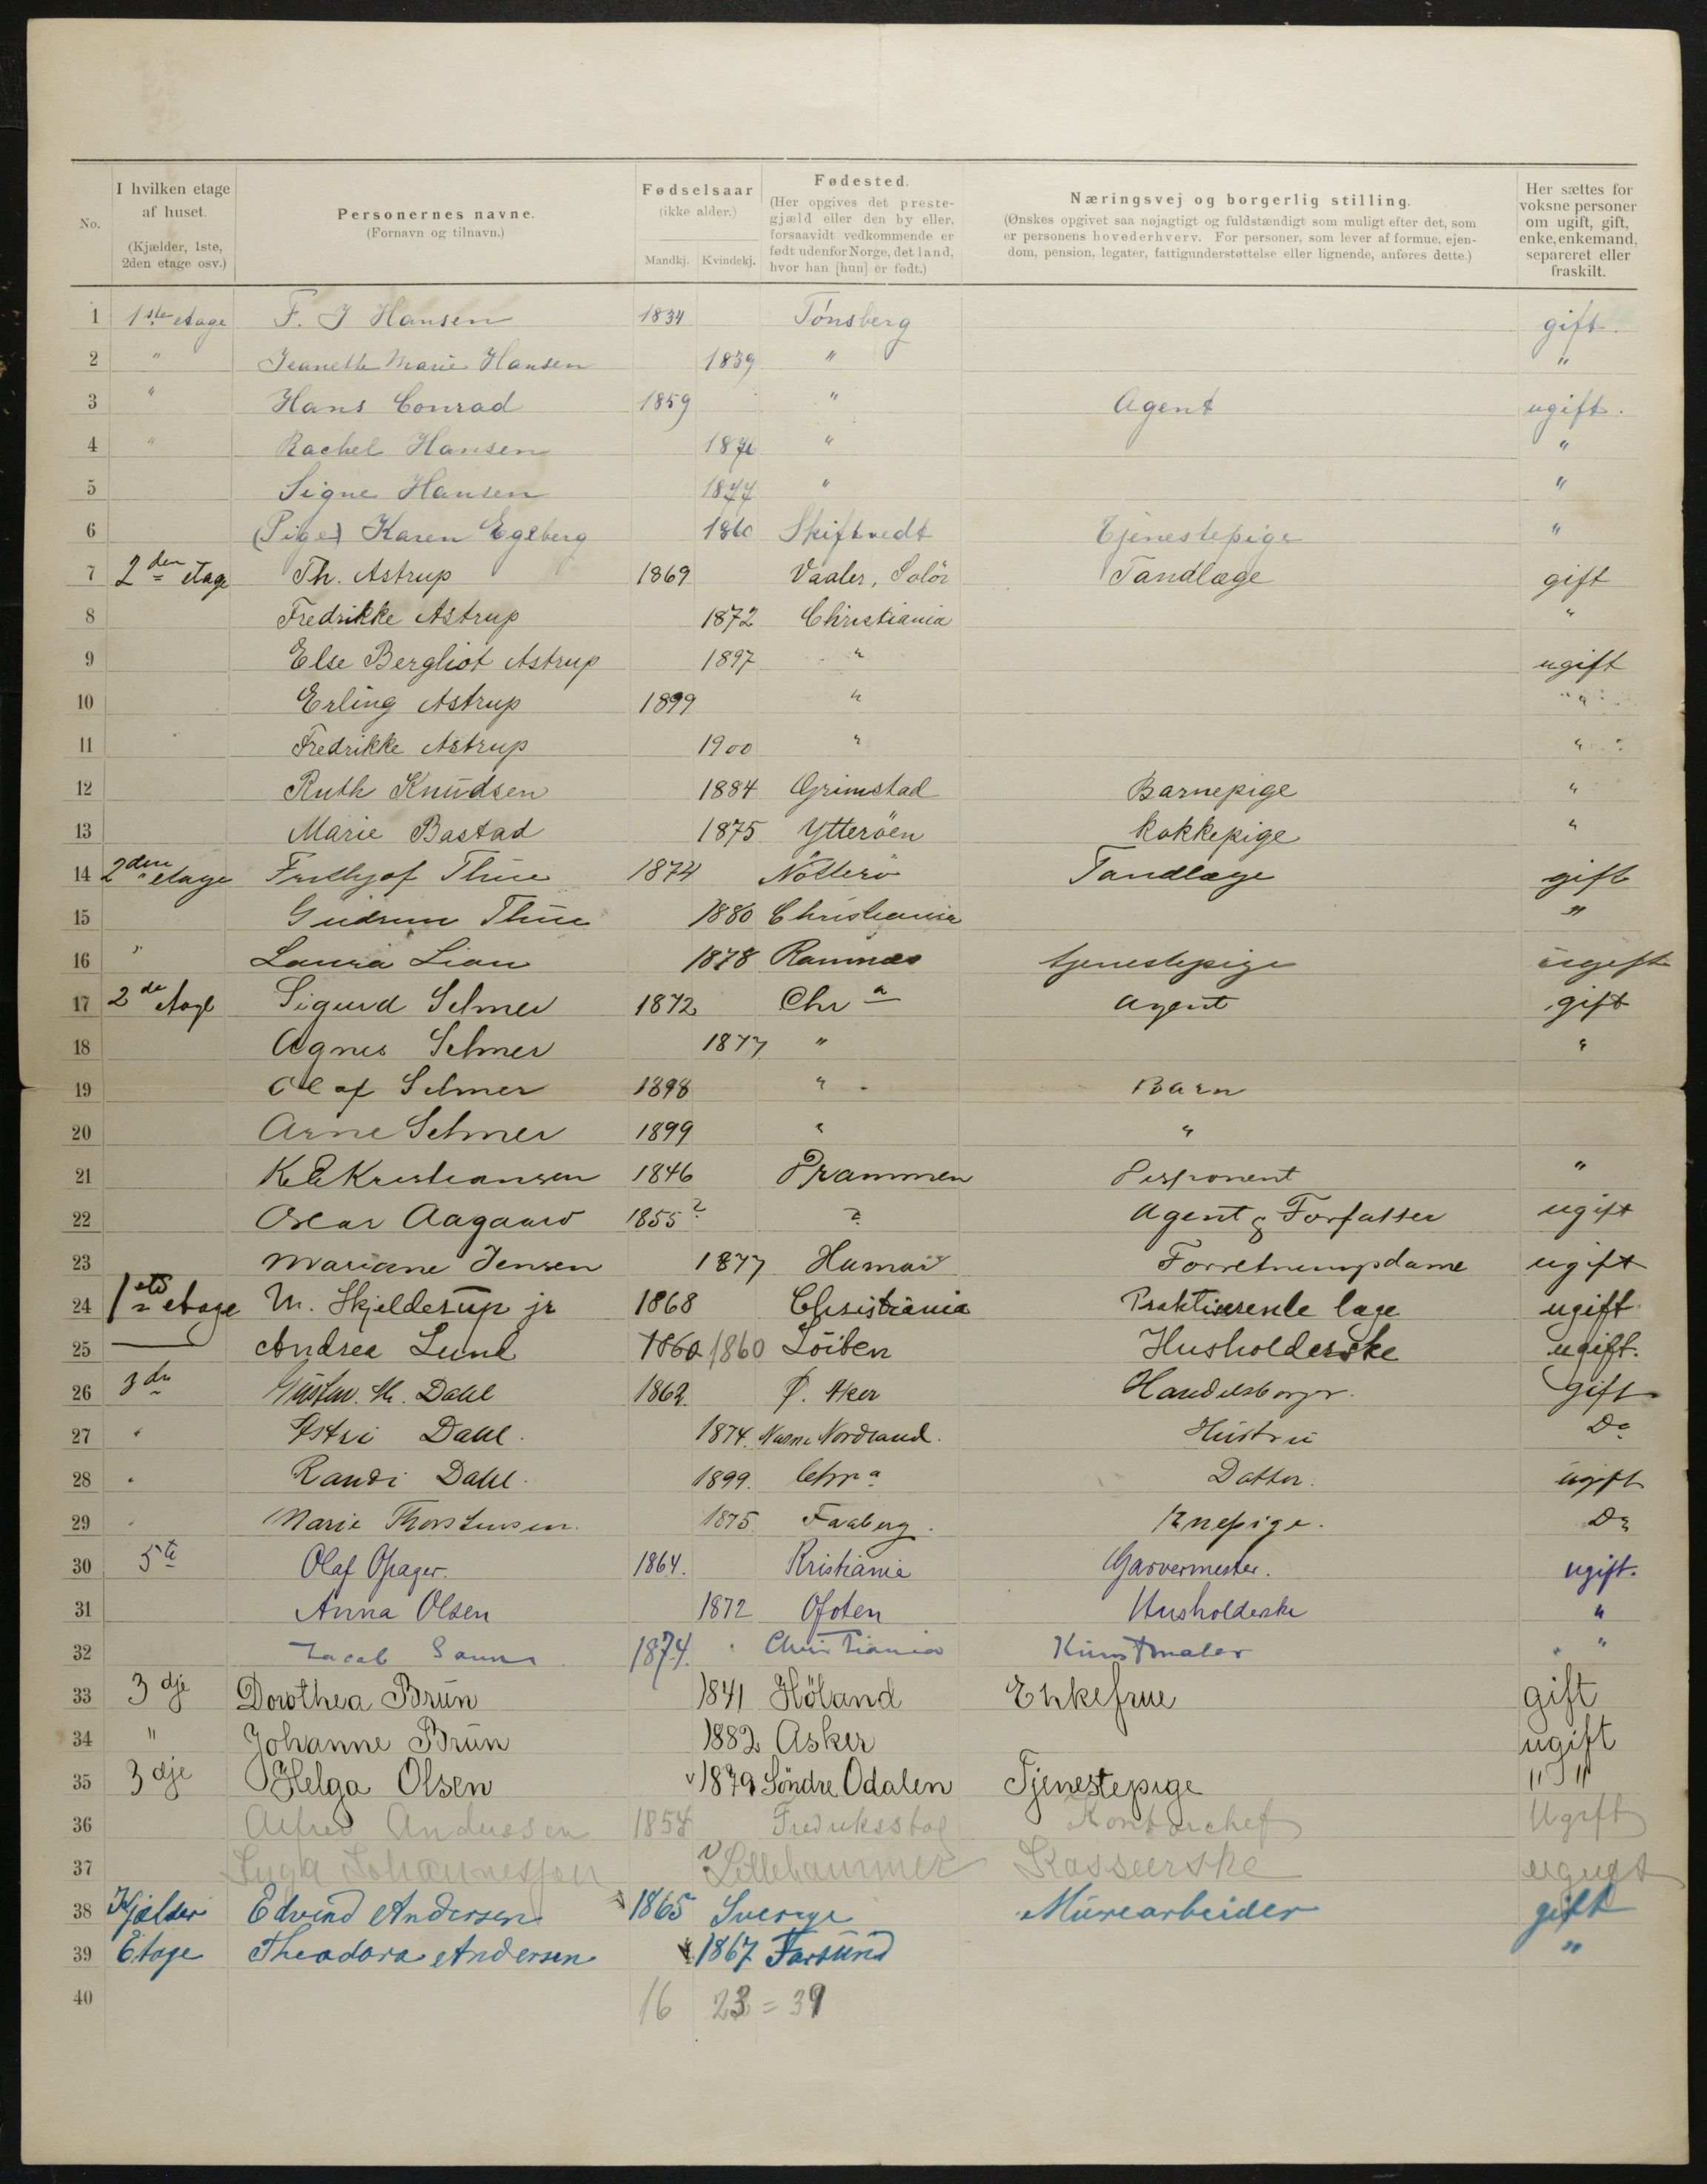 No.
I hvilken etage af huset.
(Kjælder, 1ste, 2den etage osv.)
Personernes navne.
(Fornavn og tilnavn.)
Fødselsaar
(ikke alder.)
Mandkj. Kvindekj.
Fødested.
(Her opgives det prestegjæld eller den by eller, forsaavidt vedkommende er født udenfor Norge, det land, hvor han [hun] er født.)
Næringsvej og borgerlig stilling.
(Ønskes opgivet saa nøjagtigt og fuldstændigt som muligt efter det, som er personens hovederhverv. For personer, som lever af formue, ejendom, pension, legater, fattigunderstøttelse eller lignende, anføres dette.)
Her sættes for voksne personer om ugift, gift, enke, enkemand, separeret eller fraskilt.
1 1ste etage F. J Hansen 1834 Tønsberg gift
2 " Jeanette Marie Hansen 1839 " "
3 " Hans Conrad 1859 " Agent ugift.
4 " Rachel Hansen "  "
5 Signe Hansen 1877 " "
6 (Pige) Karen Egeberg 1860 Skiftvedt Tjenestepige "
7 2den etage Th. Astrup 1869 Vaaler, Solör Tandlæge gift
8 Fredrikke Astrup 1872 Christiania "
9 Else Bergliot Astrup 1897 " ugift
10 Erling Astrup 1899 " "
11 Fredrikke Astrup 1900 " "
12 Ruth Knudsen 1884 Grimstad Barnepige "
13 Marie Bastad 1875 Ytteröen Kokkepige "
14 2den etage Fridtjof Thue 1874 Nötterö Tandlæge gift
15 Gudrun Thue 1880 Christiania "
16 " Laura Lian 1878 Ramnæs tjenestepige ugift
17 2de etage Sigurd Selmer 1872 Chra Agent gift
18 Agnes Selmer 1877 " "
19 Olaf Selmer 1898 " Barn
20 Arne Selmer 1899 " "
21 K E Kristiansen 1846 Drammen Disponent "
22 Oscar Aagaard 1855? ? Agent & Forfatter ugift
23 Mariane Jensen 1877 Hamar Forretningsdame ugift
24 1ste etage M. Skjelderup jr 1868 Christiania Praktiserende læge ugift
25 Andrea Lund 1860 1860 Löiten Husholderske ugift.
26 3de Gustav. M. Dahl 1862. Ø. Aker Handelsborger. gift
27 " Astri Dahl. 1874. Nordland. Hustru Do
28 " Randi Dahl. 1899. Chra Datter. ugift
29 " Marie Thorstensen. 1875 Faaberg. Enepige. Do
30 5te Olaf Opager. 1864. Kristiania Garvermester. ugift.
31 Anna Olsen 1872 Ofoten Husholderske "
32 Jacob 1874. Christiania Kunstmaler "
33 3dje Dorothea Brun 1841 Höland Enkefrue gift
34 " Johanne Brun 1882 Asker ugift
35 3dje Helga Olsen 1879 Söndre Odalen Tjenestepige " "
36 Alfred Anderssen 1854 Fredriksstad Kontorchef Ugift
37 Johannessen Lillehammer Kasserske ugift
38 Kjælder Edvind Andersen 1865 Sverige Murearbeider gift
39 Etage Theodora Andersen 1867 Farsund "
40 16 23 = 39